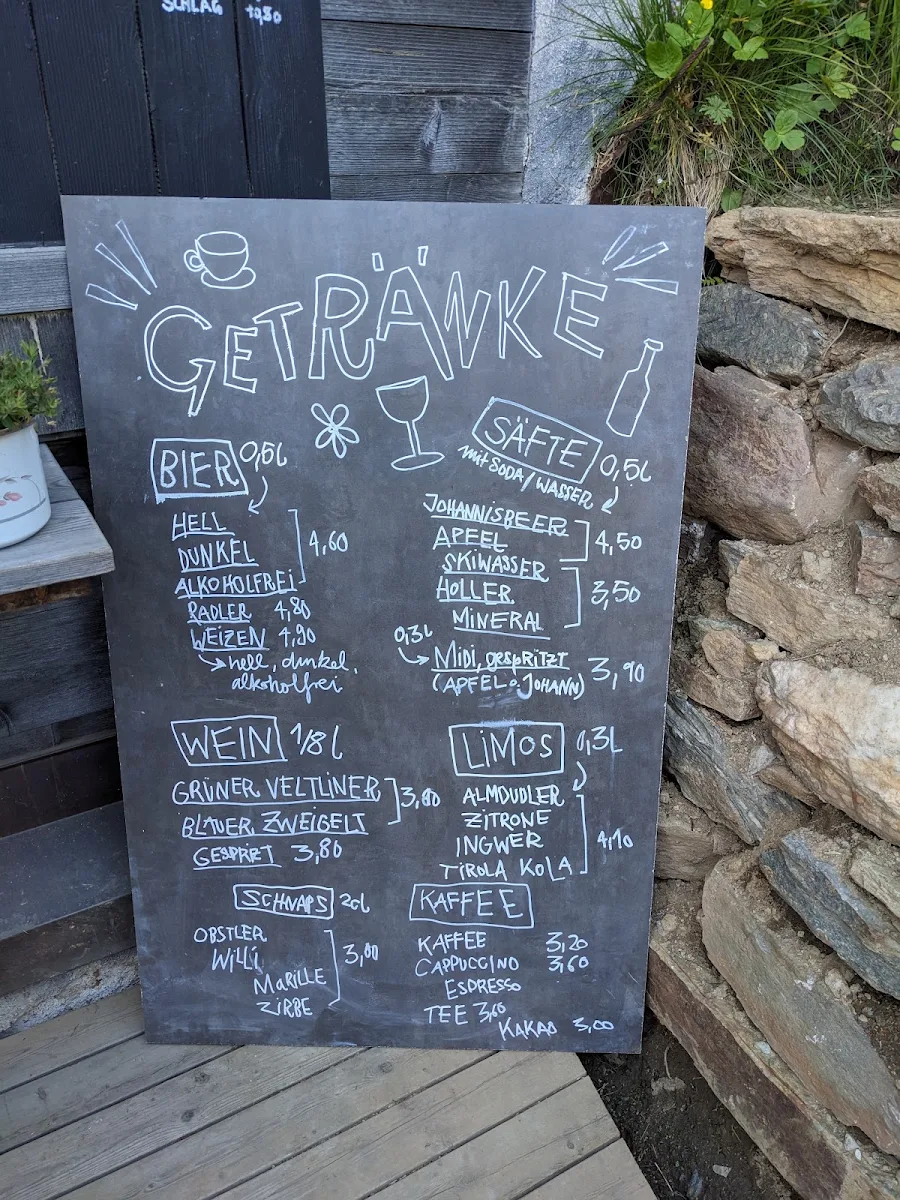 SCHLAG 10,80
GETRÄNKE
BIER 0,5l
HELL
DUNKEL
ALKOHOLFREI
4,60
RADLER 4,80
WEIZEN 4,90
hell, dunkel,
alkoholfrei
SÄFTE 0,5l
mit SODA/WASSER
JOHANNISBEER
APFEL
4,50
SKIWASSER
HOLLER
MINERAL
3,50
0,3l
Midi, gespritzt
(APFEL o. JOHANN) 3,90
WEIN 1/8 l
GRÜNER VELTLINER
BLAUER ZWEIGELT
GESPRIZT 3,80
LiMOS 0,3L
ALMDUDLER
ZITRONE
INGWER
TiROLA KOLA
4,10
SCHNAPS 2cl
OBSTLER
WiLLi
MARiLLE
ZiRBE
KAFFEE
KAFFEE 3,20
CAPPUCCINO 3,60
ESPRESSO
TEE 3,60
KAKAO 3,00